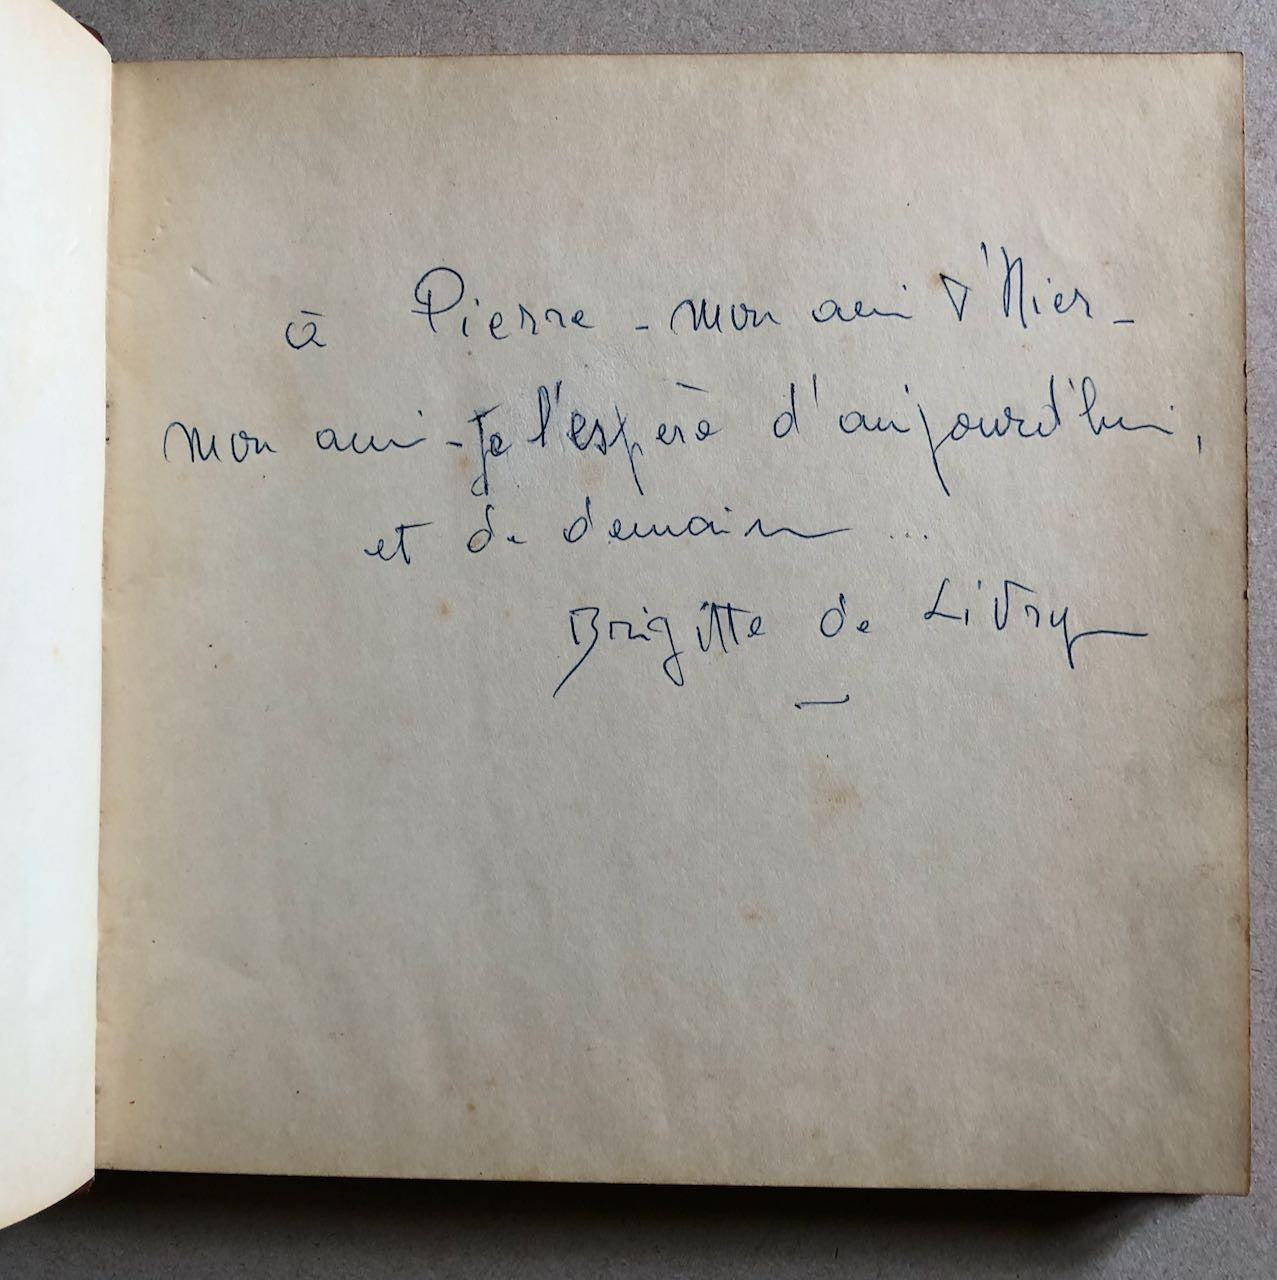 à Pierre - mon ami d'Hier -
mon ami - je l'espère d'aujourd'hui,
et de demain ...
Brigitte de Livry